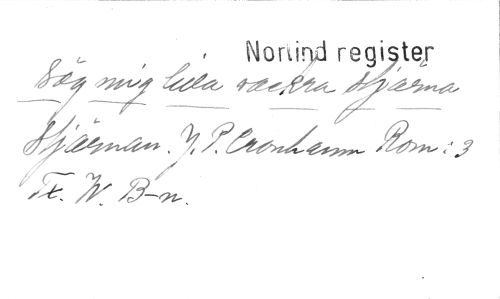 Norlind register
Säg mig lilla vackra stjärna
Stjärnan. J. P. Cronhamn Rom: 3
Tx. W. B-n.